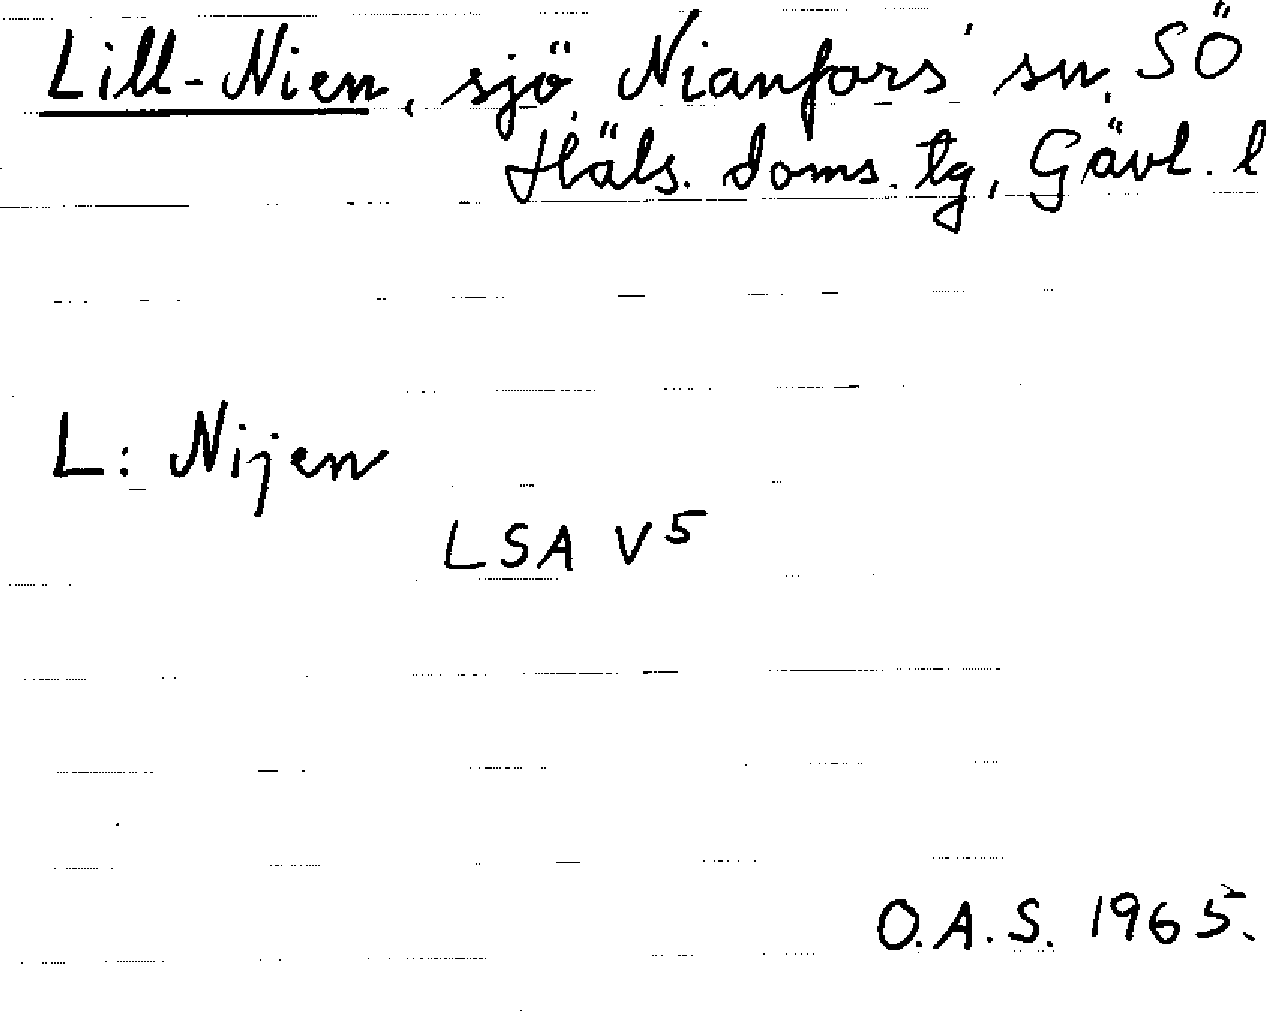 Lill-Nien, sjö, Nianfors' sn, SÖ
Häls. doms. tg, Gävl. l
L: Nijen
LSA V5
O.A.S. 1965.